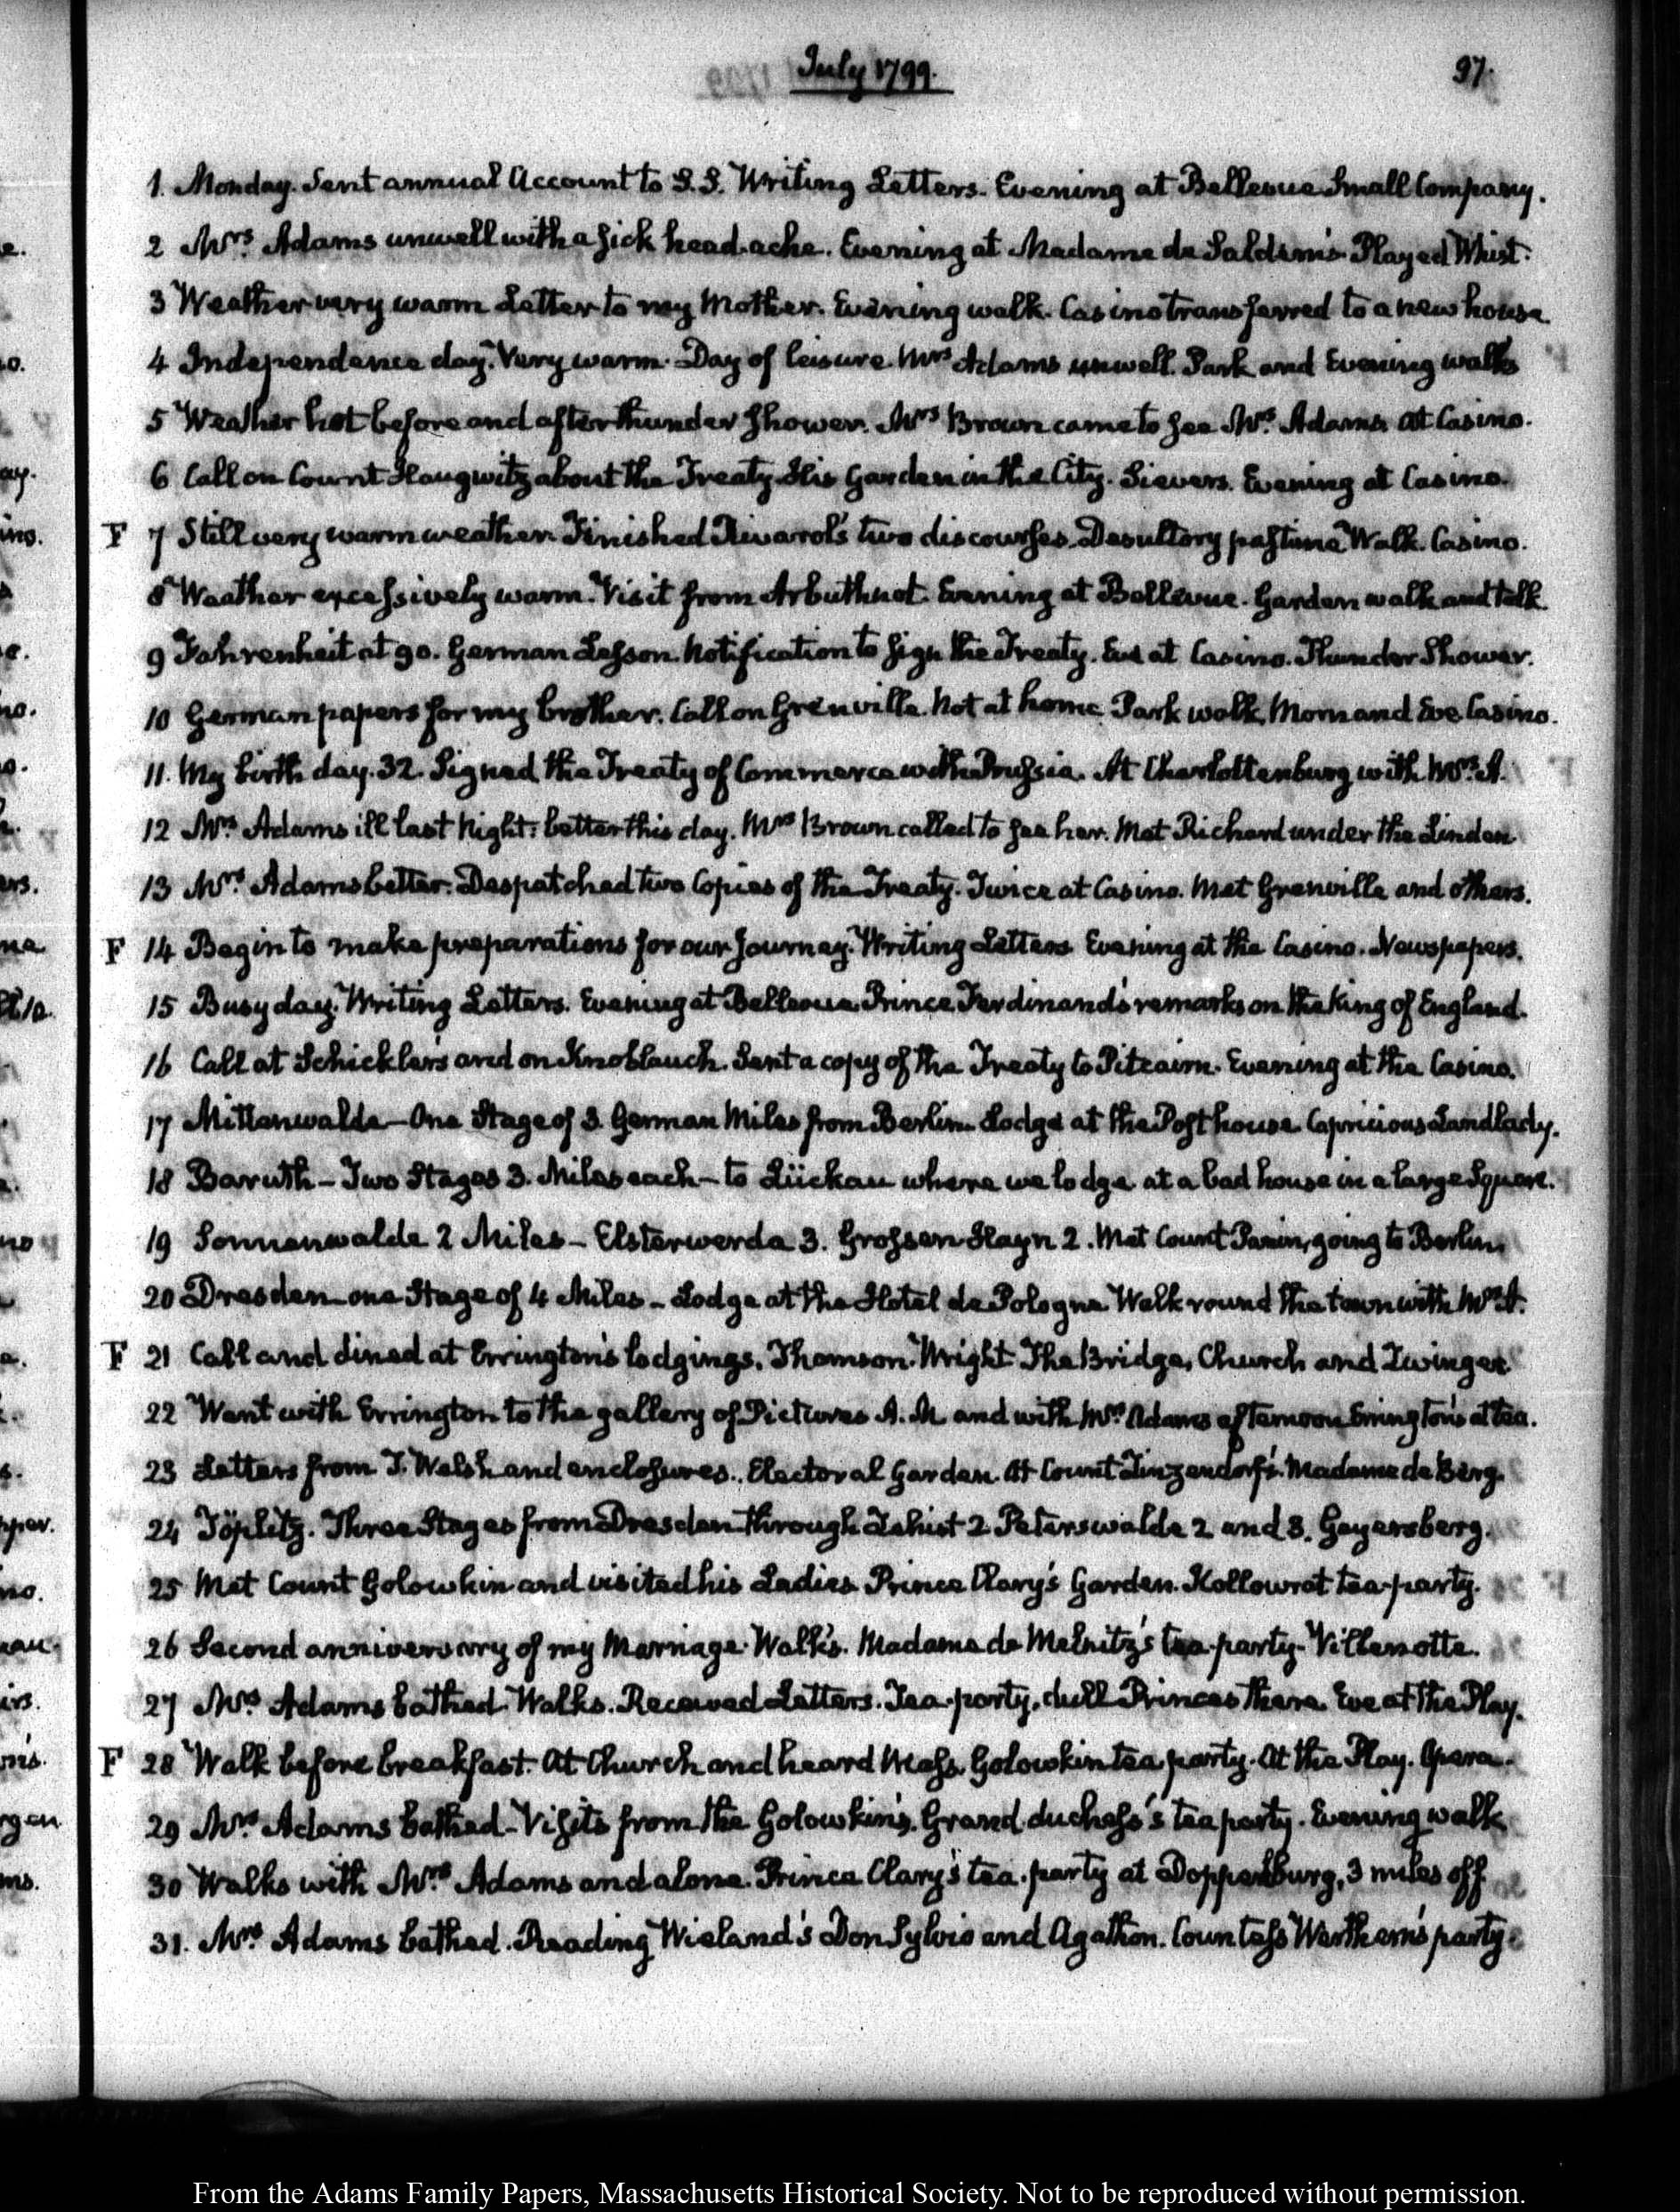 July 1799.
97.
1. Monday. Sent annual Account to S.S. Writing Letters. Evening at Bellevue Small Company.
2 Mrs. Adams unwell with a sick head-ache. Evening at Madame de Saldern's. Played Whist.
3 Weather very warm Letter to my Mother. Evening walk. Casino transferred to a new house.
4 Independence day. Very warm. Day of leisure. Mrs Adams unwell. Park and Evening walks
5 Weather hot before and after thunder shower. Mrs Brown came to see Mrs. Adams. At Casino.
6 Call on Count Haugwitz about the Treaty. His Garden in the City. Sievers. Evening at Casino.
F 7 Still very warm weather. Finished Rivarol's two discourses. Desultory pastime Walk. Casino.
8 Weather excessively warm. Visit from Arbuthnot. Evening at Bellevue. Garden walk and talk.
9 Fahrenheit at 90. German Lesson. Notification to sign the Treaty. Eve at Casino. Thunder Shower.
10 German papers for my brother. Call on Grenville. Not at home Park walk, Morn and Eve Casino.
11. My birth day. 32. Signed the Treaty of Commerce with Prussia. At Charlottenburg with Mrs. A.
12 Mrs. Adams ill last night: better this day. Mrs Brown called to see her. Met Richard under the Linden
13 Mrs. Adams better. Despatched two Copies of the Treaty. Twice at Casino. Met Grenville and others.
F 14 Begin to make preparations for our Journey. Writing Letters Evening at the Casino. Newspapers.
15 Busy day. Writing Letters. Evening at Bellevue Prince Ferdinand's remarks on the King of England.
16 Call at Schickler's and on Knoblauch. Sent a copy of the Treaty to Pitcairn. Evening at the Casino.
17 Mittenwalde—One Stage of 3. German Miles from Berlin. Lodge at the Posthouse Capricious Landlady.
18 Baruth—Two Stages 3. Miles each—to Lückau where we lodge at a bad house in a large Square.
19 Sonnenwalde 2 Miles—Elsterwerda 3. Grossen Hayn 2. Met Count Panin, going to Berlin.
20 Dresden—one Stage of 4 Miles—Lodge at the Hotel de Pologne Walk round the town with Mrs. A.
F 21 Call and dined at Errington's lodgings. Thomson. Wright The Bridge, Church and Zwinger
22 Went with Errington to the gallery of Pictures A.M and with Mrs. Adams afternoon Errington's at tea.
23 Letters from T. Welsh and enclosures. Electoral Garden. At Count Zinzendorf's. Madame de Berg.
24 Töplitz. Three Stages from Dresden through Zehist 2 Peterswalde 2 and 3. Geyersberg.
25 Met Count Golowkin and visited his Ladies Prince Clary's Garden. Kollowrat tea-party.
26 Second anniversary of my Marriage. Walks. Madame de tea-party. Villenotte.
27 Mrs. Adams bathed. Walks. Received Letters. Tea-party, dull Princes there Eve at the Play.
F 28 Walk before breakfast. At Church and heard Mass. Golowkin tea party. At the Play. Opera.
29 Mrs. Adams bathed—Visits from the Golowkins. Grand duchess's tea party. Evening walk
30 Walks with Mrs. Adams and alone. Prince Clary's tea-party at Dopperlburg, 3 miles off
31. Mrs. Adams bathed. Reading Wieland's Don Sylvio and Agathon. Countess Werthern's party.
From the Adams Family Papers, Massachusetts Historical Society. Not to be reproduced without permission.